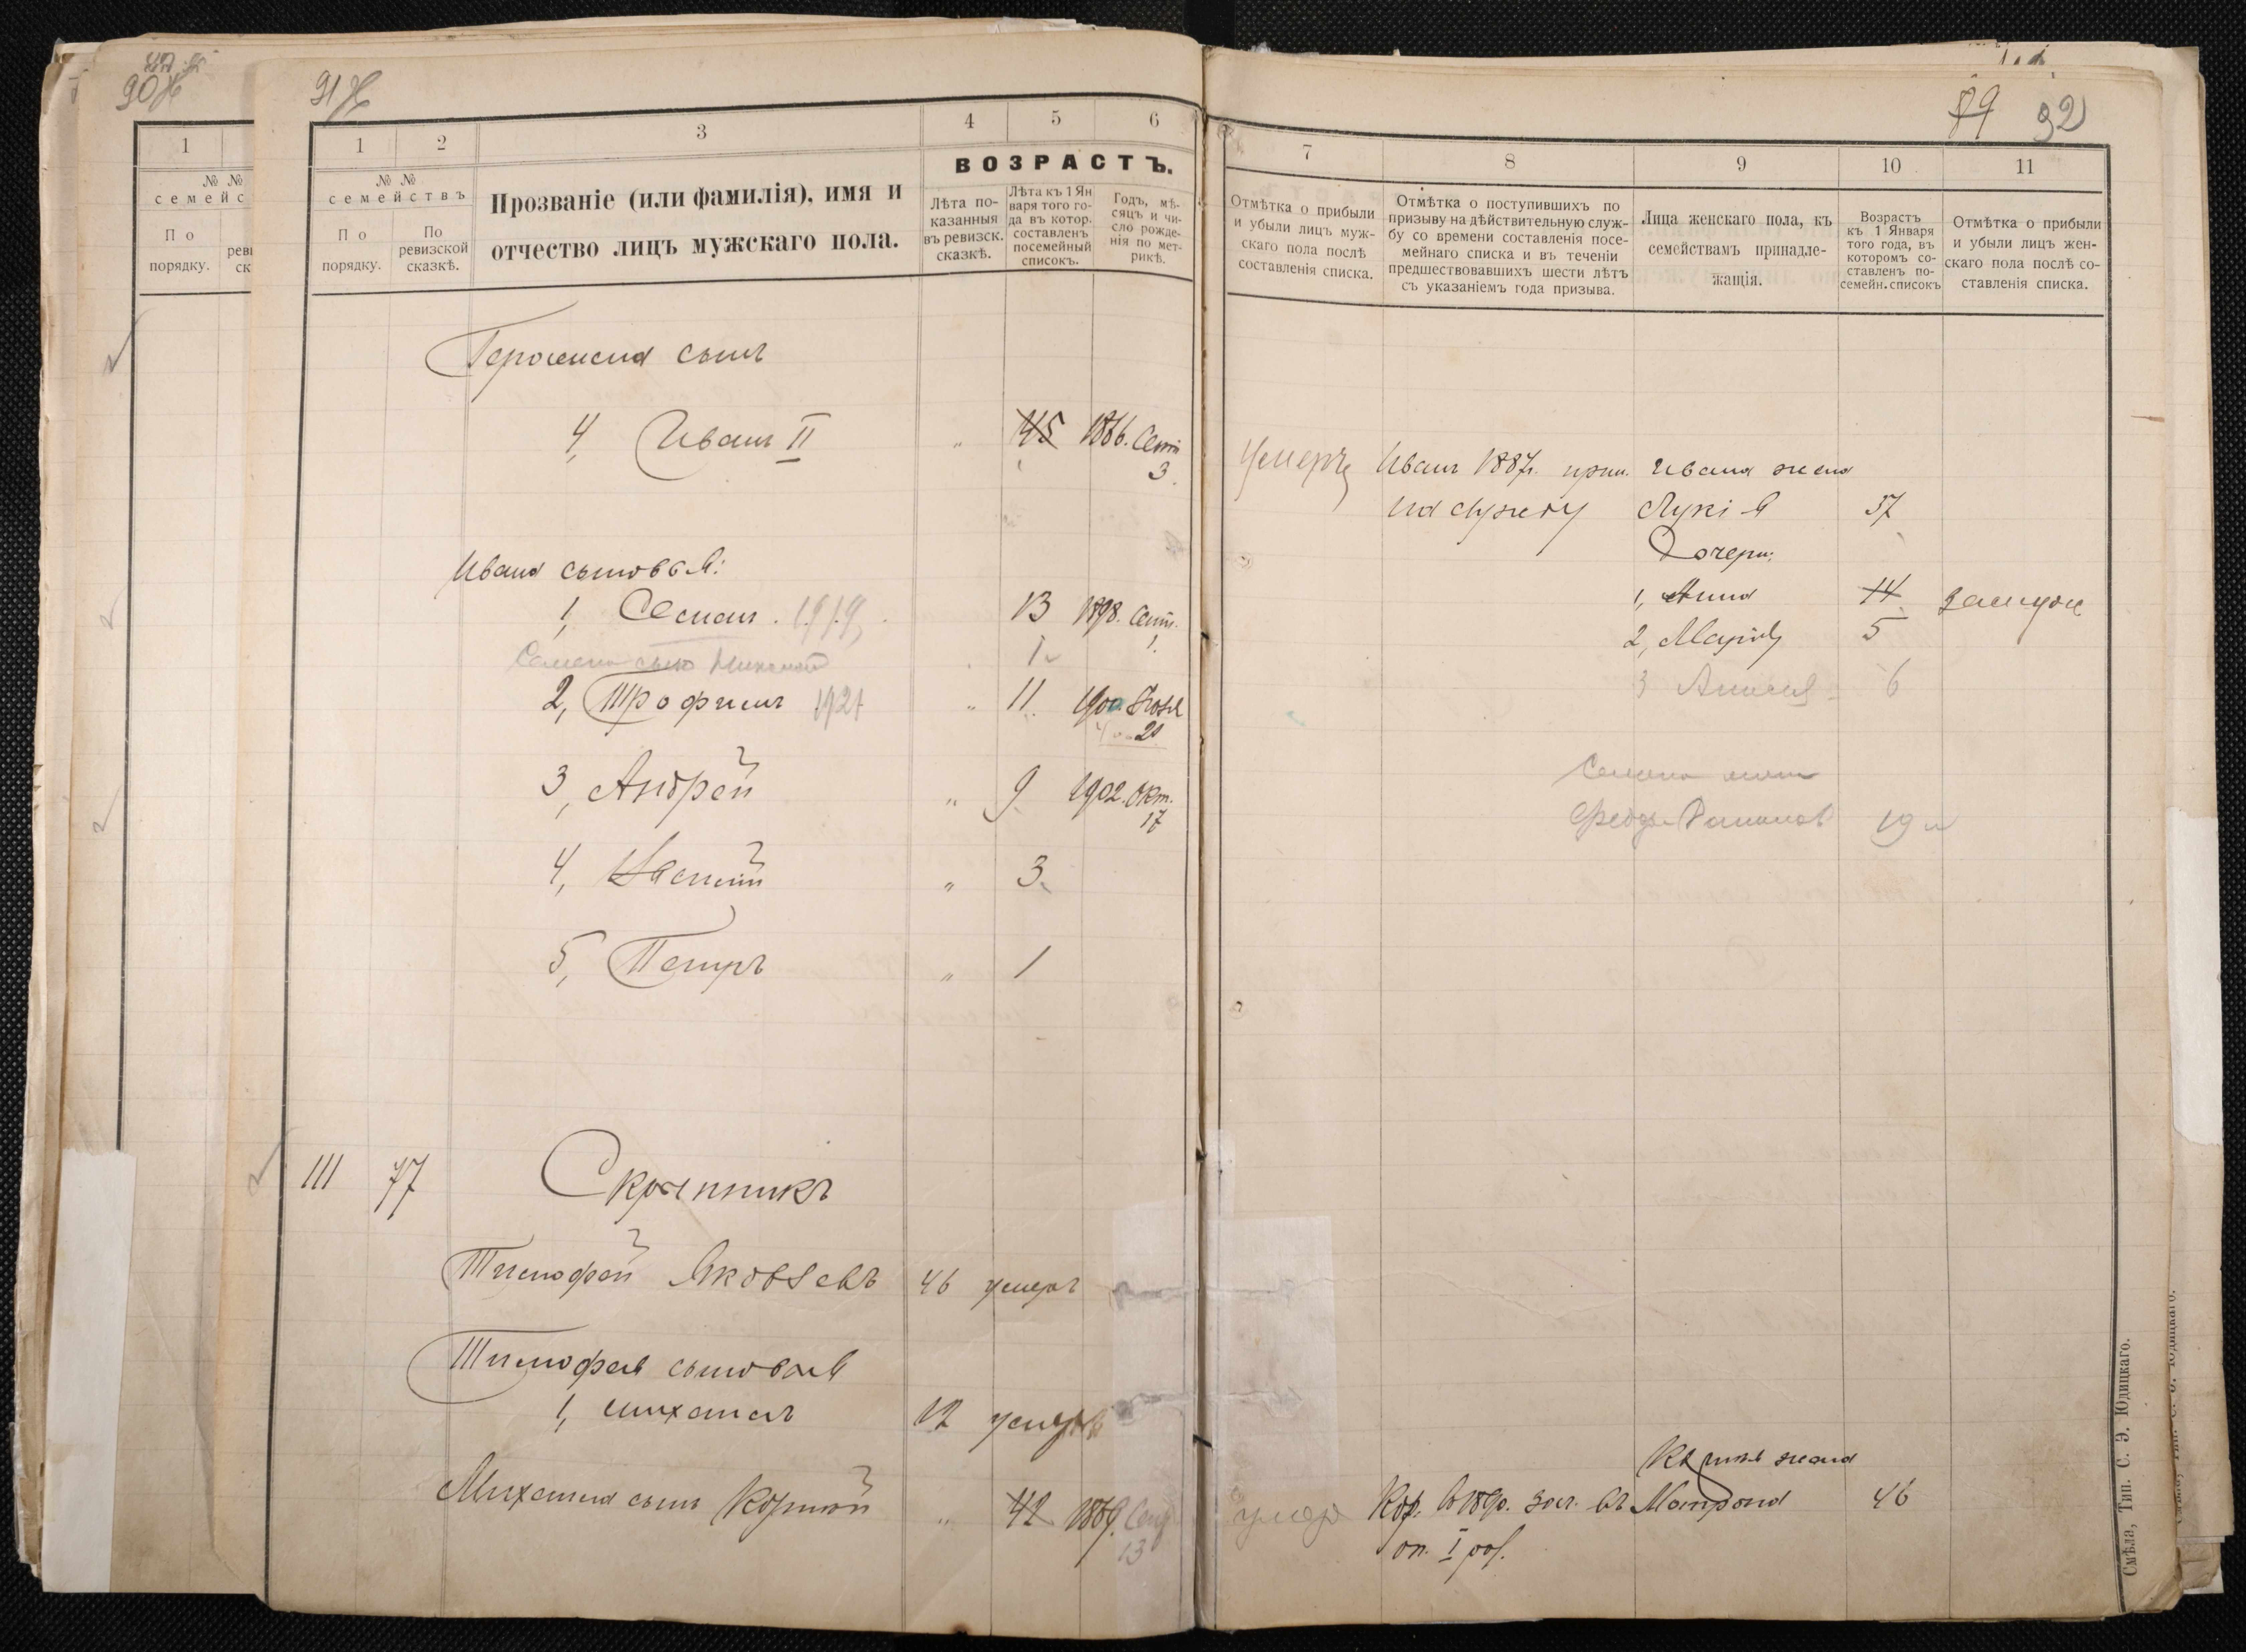 90
91
1
1
2
3
4
5
6
ВОЗРАСТЪ.
№ №
семейс
По
порядку.
№ №
семействъ
По
порядку.
По
ревизской
сказкѣ.
Прозваніе (или фамилія), имя и
отчество лицъ мужскаго пола.
Лѣта по-
казанныя
въ ревизск.
сказкѣ.
Лѣта къ 1 Ян
варя того го-
да въ котор.
составленъ
посемейный
списокъ.
Годъ, мѣ-
сяцъ и чи-
сло рожде-
нія по мет-
рикѣ.
сынъ
4, Иванъ II " 45 1866. Сент.
3.
Ивана сыновья:
1, Семенъ. 1919. 13 1898. Сент.
1.
Семена сынъ 1
2, Трофимъ 1921 " 11 1900.
20
3, Андрей " 9 1902. Окт.
17
4, " 3
5, Петръ " 1
111 77 Скрипникъ
Тимофей Яковлевъ 46 умеръ
Тимофея сыновья
1, Михаилъ 12 умеръ
Михаила сынъ Корній " 42 1869.
13
89 92
7
8
9
10
11
Отмѣтка о прибыли
и убыли лицъ муж-
скаго пола послѣ
составленія списка.
Отмѣтка о поступившихъ по
призыву на дѣйствительную служ-
бу со времени составленія посе-
мейнаго списка и въ теченіи
предшествовавшихъ шести лѣтъ
съ указаніемъ года призыва.
Лица женскаго пола, къ
семействамъ принадле-
жащія.
Возрастъ
къ 1 Января
того года, въ
которомъ со-
ставленъ по-
семейн. списокъ
Отмѣтка о прибыли
и убыли лицъ жен-
скаго пола послѣ со-
ставленія списка.
Умеръ Иванъ 1887г. прин. Ивана жена
на службу Лукія 37
Дочери:
1, Анна 14 замуж
2, Марія 5
3 6
Семена жена
19
жена
умер Кор. въ 1890. зач. въ Матрона 46
оп. I раз.
Смѣла, Тип. С. Э. Юдицкаго.